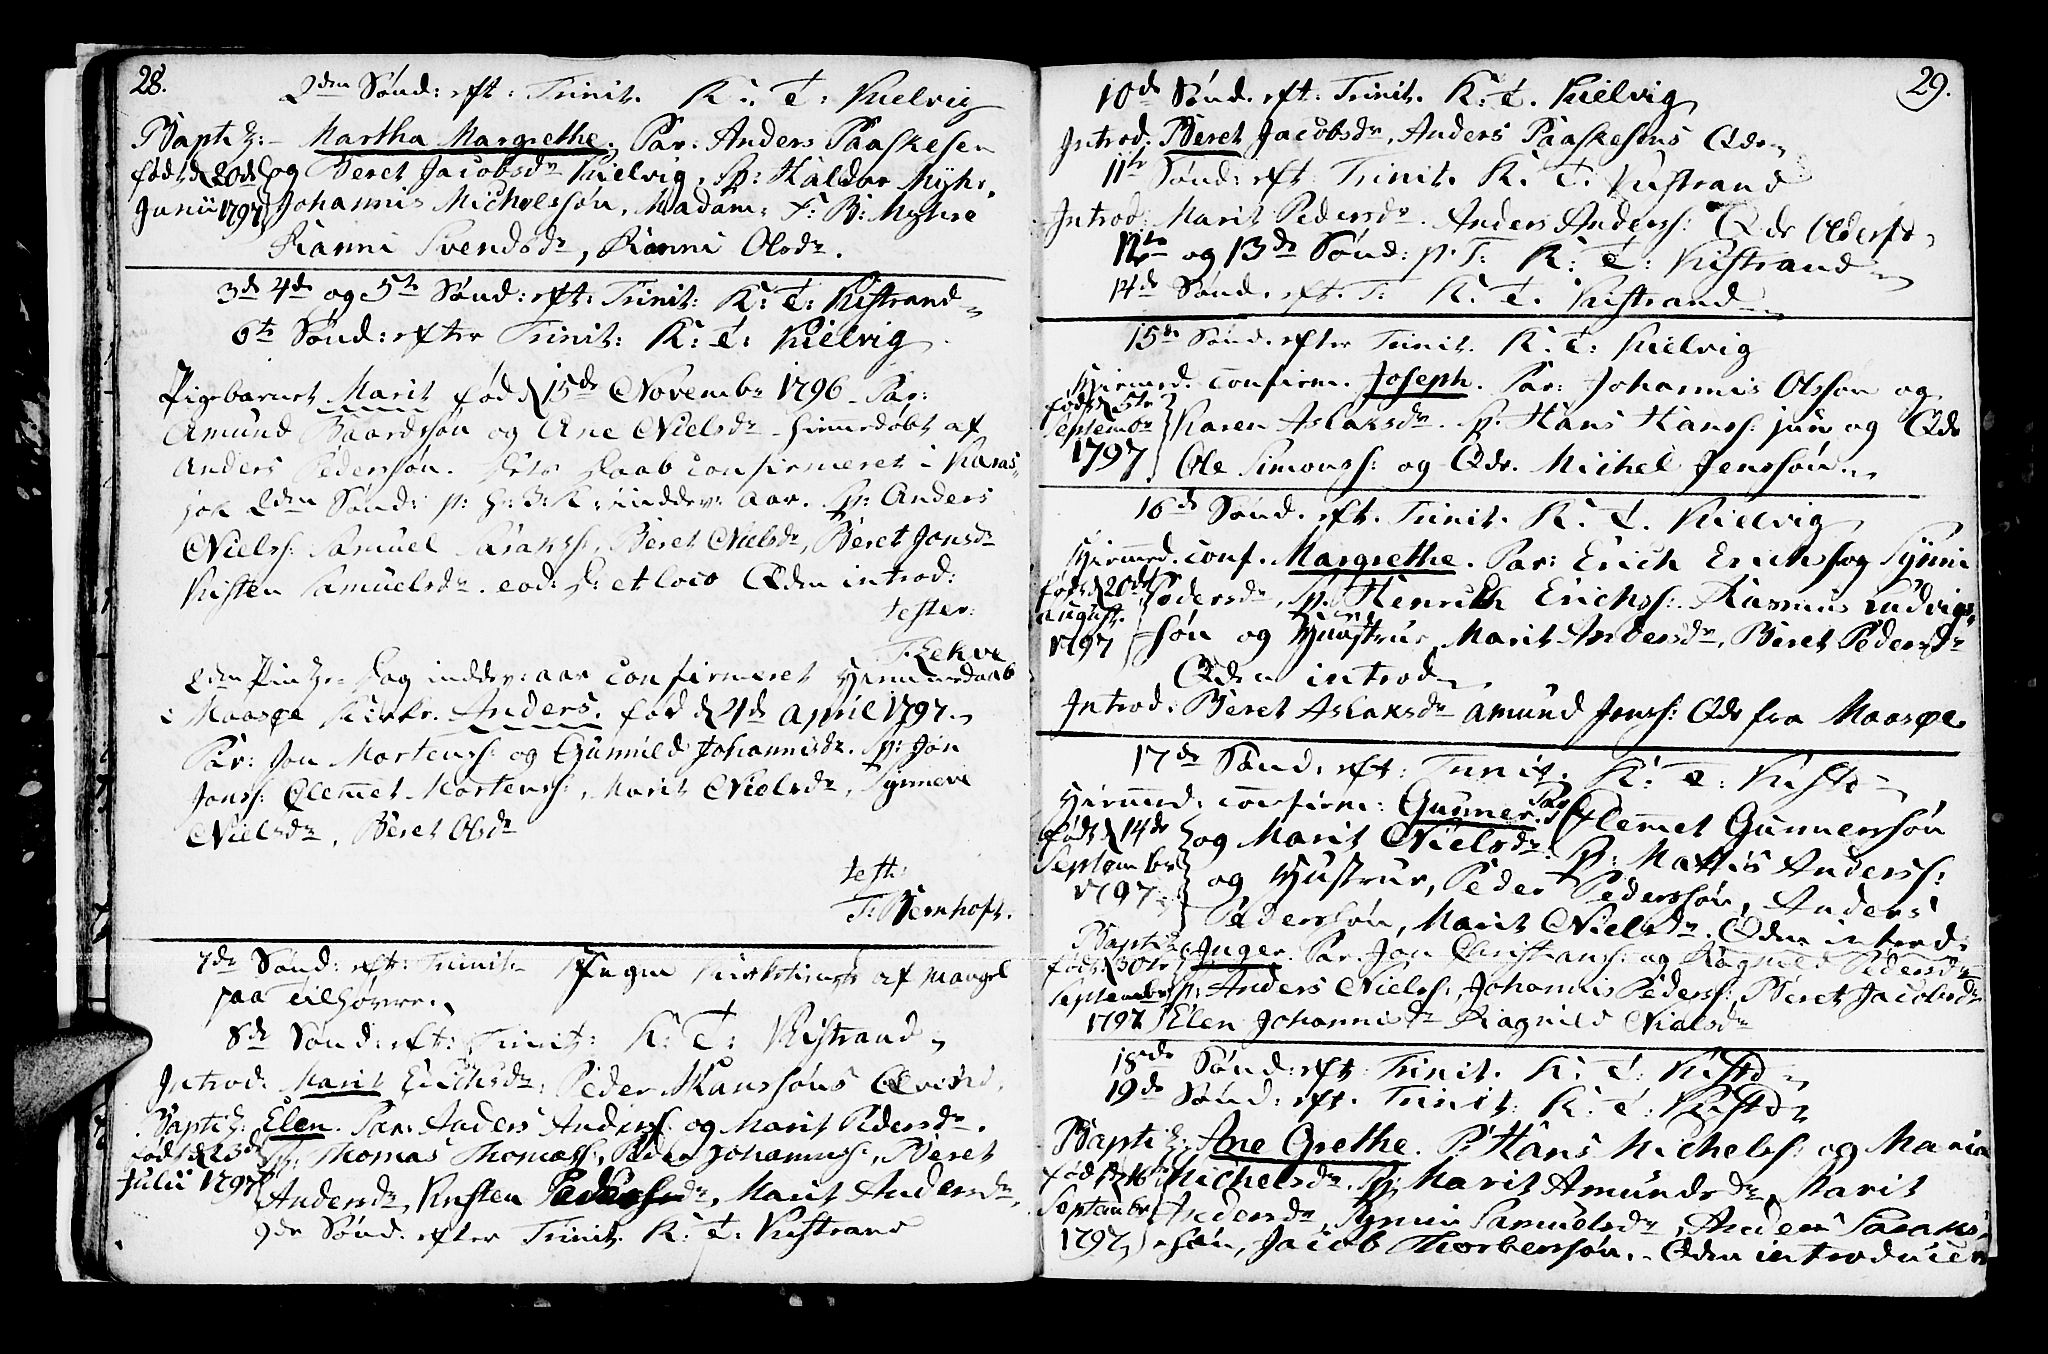 28.
2den Sønd: eft: Trinit. K: T: Kielvig
Baptiz:- Martha Margrethe. Par: Anders Paaskesen
født d 20de og Beret Jacobsdr Kielvig. Sp: Haldor Myhr.
Junii 1797 Johannis Michelssøn, Madam: T: B: Myhre
Ranni Svendsdr, Ranni Olsdr.
3de 4de og 5te Sønd: eft: Trinit: K: T: Kistrand
6te Sønd: efter Trinit: K: T: Kielvig
Pigebarnet Marit fød d 15de Novembr 1796. Par:
Amund Baardssøn og Ane Nielsdr hiemedøbt af
Anders Pederssøn. daab confirmeret i Karas-
jok 2den Sønd: p: H: 3: K: inddev: Aar. Sp: Anders
Niels: Samuel Saraks:, Beret Nielsdr, Beret Jonsdr
Kisten Samuelsdr. eod: D: et loco Qden introd:
tester:
T. Lekve
2den Pintze Dag inddev: aar confirmeret Hiemmedaab
i Maasøe Kirke. Anders. fød d 4de April 1797.
Par: Jon Mortens: og Gunnild Johannisdr. Sp: Jon
Jons: Clemet Mortens:, Marit Nielsdr, Synneve
Nielsdr, Beret Olsdr
test:
T: Bernhoft.
7de Sønd: eft: Trinit. Ingen Kirketieneste af Mangel
paa Tilhørere.
8de Sønd: eft: Trinit: K: T: Kistrand
Introd: Marit Erichsdr. Peder Hanssøns
Baptiz: Elen. Par: Anders Anders: og Marit Pedersdr.
født d 23de Sp: Thomas Thomas:, Peder Johannis:, Beret
Julii 1797 Andersdr, Kirsten Pedersdr, Marit Andersdr,
9de Sønd: efter Trinit. K: T: Kistrand
29.
10de Sønd. eft: Trinit. K: T. Kielvig
Introd: Beret Jacobsdr, Anders Paaskesens Qde
11te Sønd: eft: Trinit. K: T: Kistrand
Introd: Marit Pedersdr. Anders Anders: Qde Olderfd
12te og 13de Sønd: p. T: K: T: Kistrand
14de Sønd. eft. T: K: T. Kistrand
15de Sønd. efter Trinit. K. T: Kielvig
Hiemed. confirm. Joseph. Par: Johannis Olssøn og
født d 5te Karen Aslaksdr. Sp. Hans Hans: jun og Qde
Septembr Ole Simons: og Qde. Michel Jenssøn
1797
16de Sønd. eft. Trinit. K. T. Kielvig
Hiemed. conf. Margrethe. Par: Erich Erichs: og Synni
født d 20de Pedersdr, Sp. Henrich Erichs: Rasmus Ludvigs-
august. søn og Hustrue, Marit Andersdr, Beret Pedersdr
1797
Qden introd
Introd: Beret Aslaksdr Amund Jons: Qde fra Maasøe
17de Sønd: eft: Trinit. K: T: Kistd
Hiemed: confirm: Gunner. Par: Clemet Gunnerssøn
født d 14de og Marit Nielsdr. Sp: Mattis Anders:
Septembr og Hustrue, Peder Pederssøn, Anders
1797. Pederssøn, Marit Nielsdr. Qden introd:
Baptiz: Inger. Par. Jon Christians: og Ragnild Pedersdr
født d 30te Sp: Anders Niels:, Johannis Peders:, Beret Jacobsdr
Septembr Elen Johannisdr Ragnild Nielsdr
1797
18de Sønd: eft: Trinit. K: T: Kistd
19de Sønd: eft. Trinit: K: T: Kistd
Baptiz: Ane Grethe. P: Hans Michels: og Maria
fød d 16 Michelsdr. Sp: Marit Amundsdr, Marit
Septembr Andersdr, Synni Samuelsdr, Anders Saraks-
1797 søn, Jacob Thorberssøn. Qden introducer